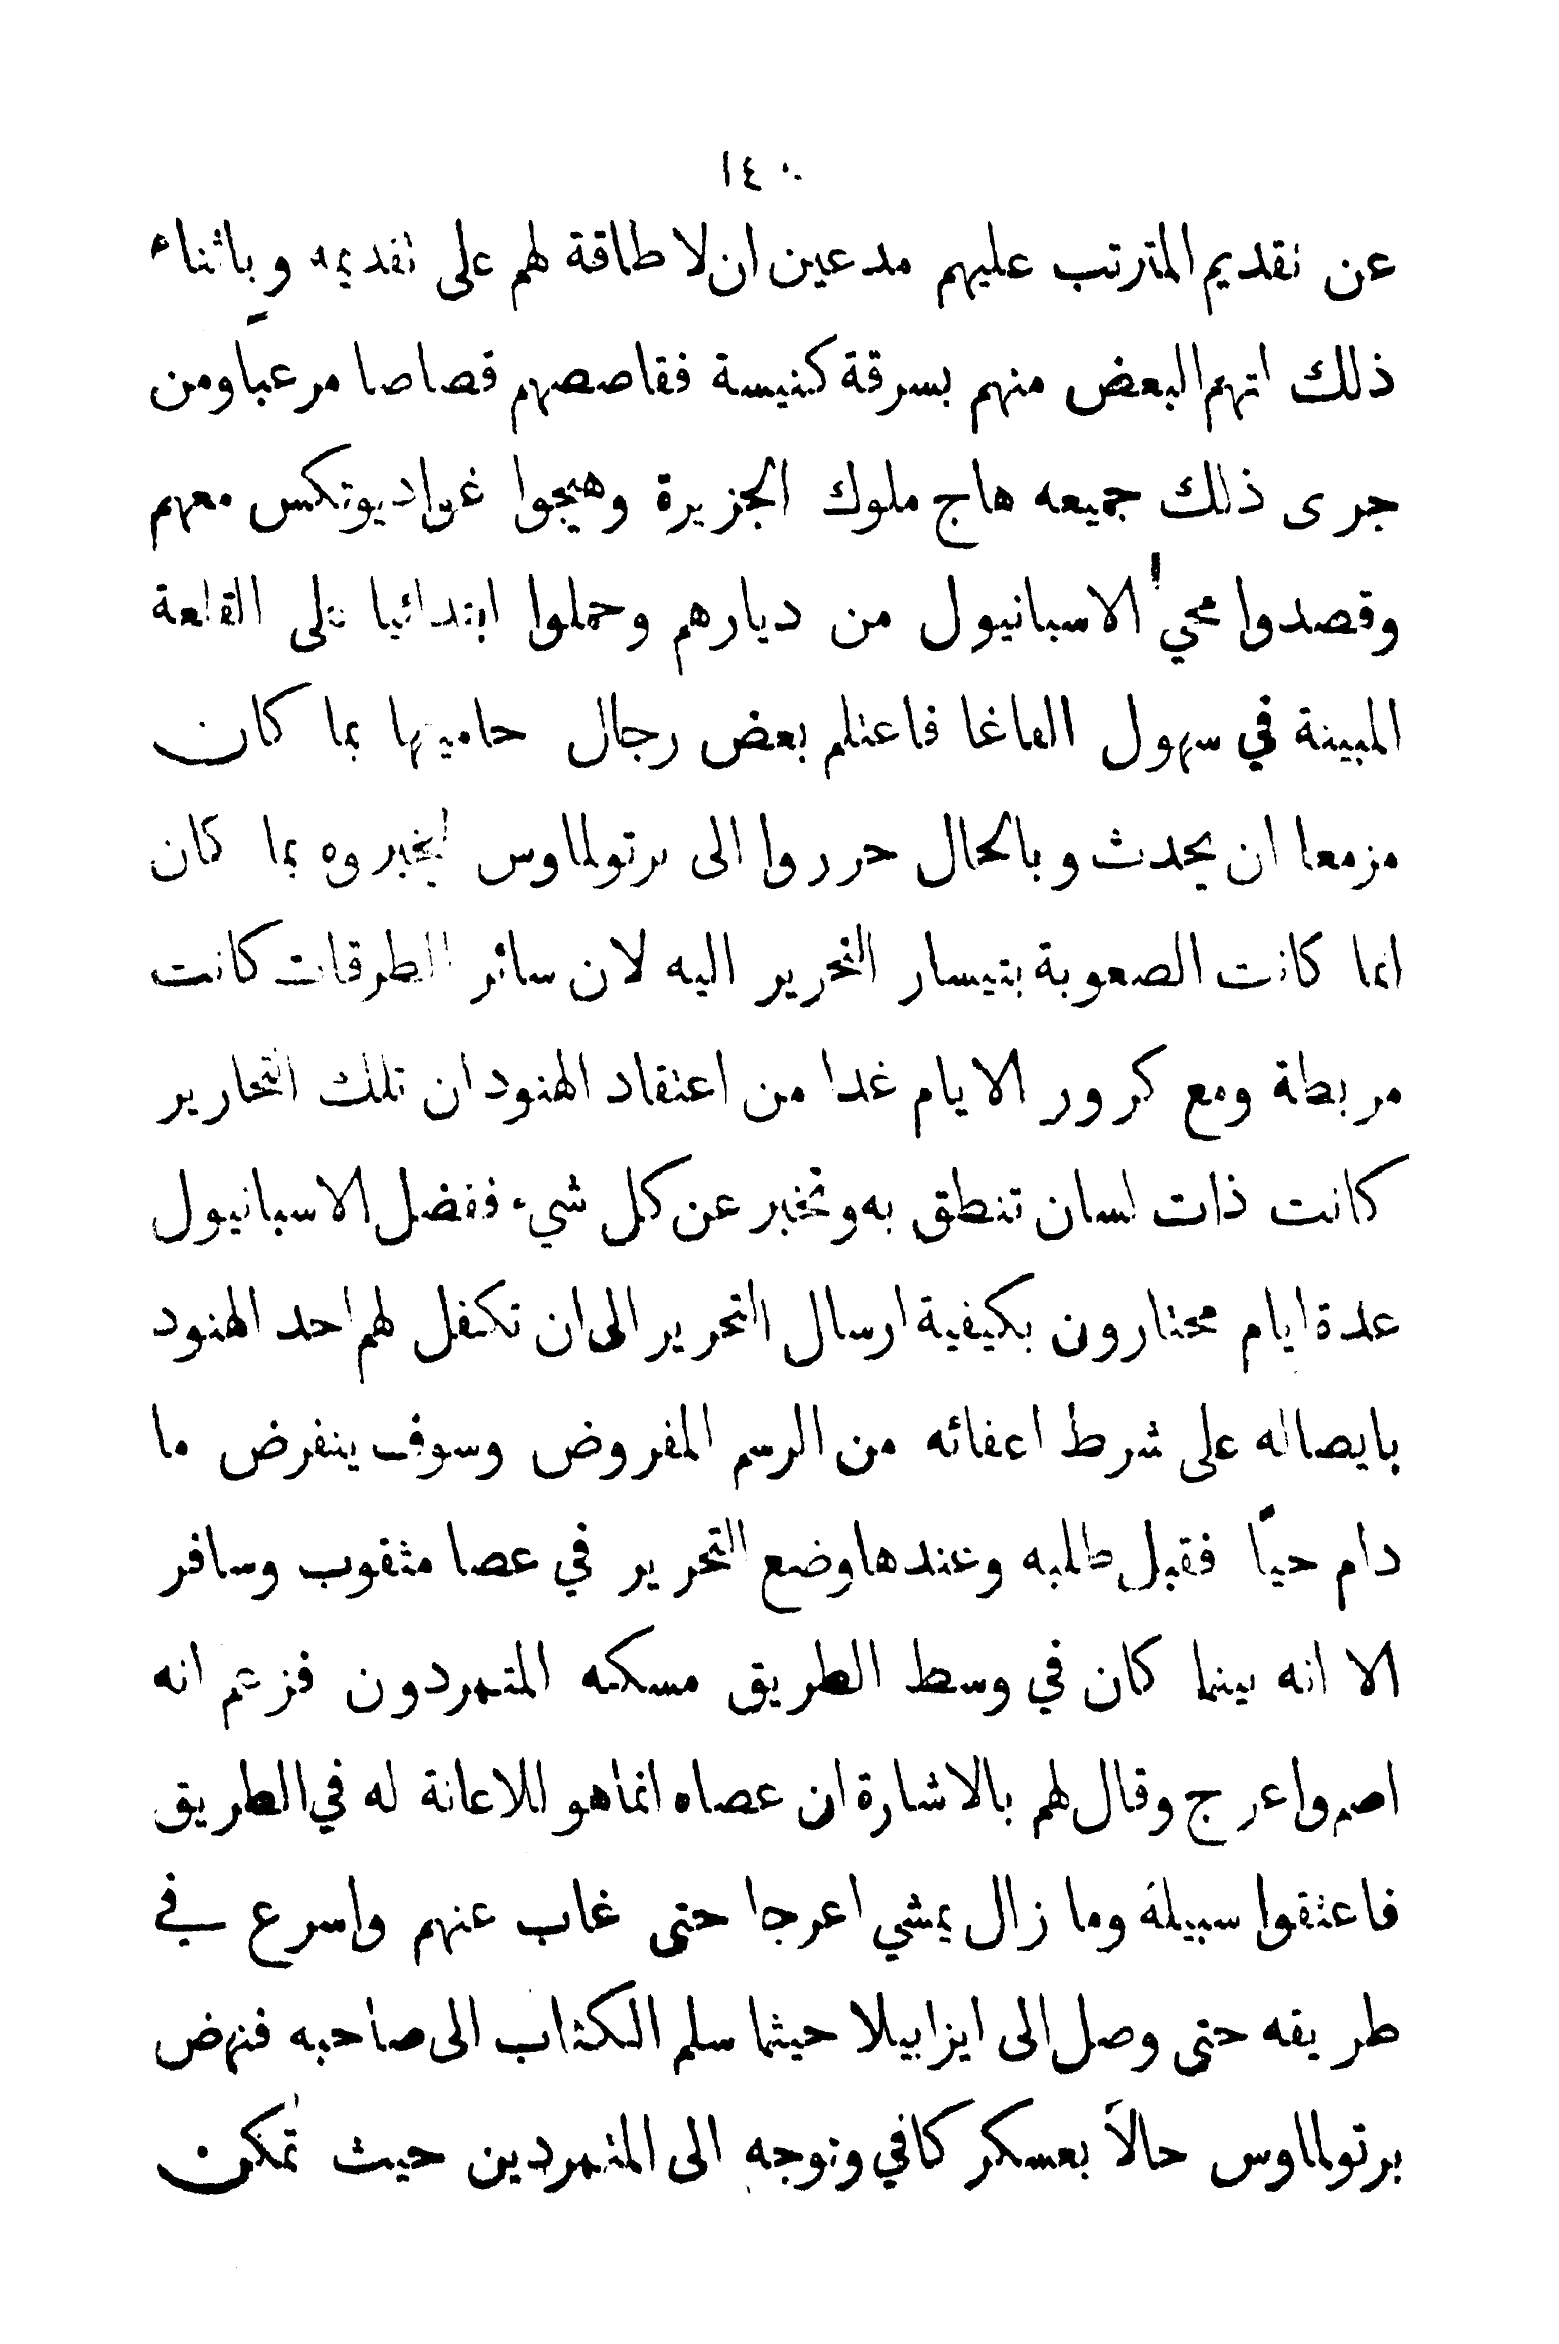 ١٤٠
عن تقديم المترتب عليهم مدعين ان لا طاقة لهم على تقديمه وباثناء
ذلك اتهم البعض منهم بسرقة كنيسة فقاصصهم قصاصا مرعبًا ومن
جرى ذلك جميعه هاج ملوك الجزيرة وهيجوا غواديوتكس معهم
وقصدوا محي الاسبانيول من ديارهم وحملوا ابتدائيا على القلعة
المبينة في سهول الفاغا فاعتلم بعض رجال حاميتها بما كان
مزمعا ان يحدث وبالحال حرروا الى برتولماوس ليخبروه بما كان
انما كانت الصعوبة بتيسار التحرير اليه لان سائر الطرقات كانت
مربطة ومع كرور الايام غدا من اعتقاد الهنود ان تلك التحارير
كانت ذات لسان تنطق به وتخبر عن كل شيء ففضل الاسبانيول
عدة ايام محتارون بكيفية ارسال التحرير الى ان تكفل لهم احد الهنود
بايصاله على شرط اعفائه من الرسم المفروض وسوف ينفرض ما
دام حيًا فقبل طلبه وعندها وضع التحرير في عصا مثقوب وسافر
الا انه بينما كان في وسط الطريق مسكه المتمردون فزعم انه
اصم واعرج وقال لهم بالاشارة ان عصاه انما هو للاعانة له في الطريق
فاعتقوا سبيله وما زال يمشي اعرجا حتى غاب عنهم واسرع في
طريقه حتى وصل الى ايزابيلا حيثما سلم الكتاب الى صاحبه فنهض
برتولماوس حالاً بعسكر كافي وتوجه الى المتمردين حيث تمكن